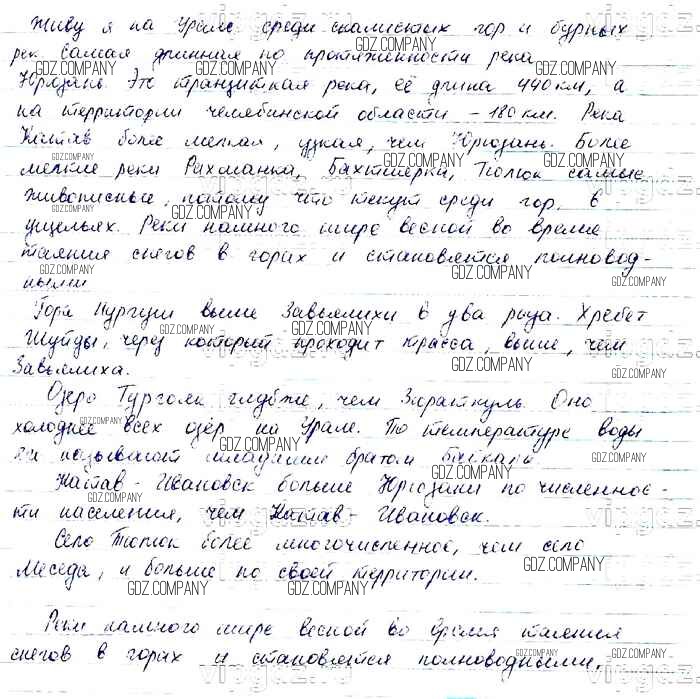 Живу я на Урале среди скалистых гор и бурных
рек. Самая длинная по протяженности река
Юрюзань. Это транзитная река, её длина 440 км, а
на территории Челябинской области – 180 км. Река
Катав более мелкая, узкая, чем Юрюзань. Более
мелкие реки Рахманка, Бахтиярка, Тюлюк самые
живописные, потому что текут среди гор, в
ущельях. Реки намного шире весной во время
таяния снегов в горах и становятся полновод-
ными
Гора Нургуш выше Завьялихи в два раза. Хребет
Шуйды, через который проходит трасса, выше, чем
Завьялиха.
Озеро Тургояк глубже, чем Зюраткуль. Оно
холоднее всех озёр на Урале. По температуре воды
его называют младшим братом Байкала.
Катав-Ивановск больше Юрюзани по численнос-
ти населения, чем Катав-Ивановск.
Село Тюлюк более многочисленное, чем село
Меседа, и больше по своей территории.
Реки намного шире весной во время таяния
снегов в горах и становятся полноводными.
GDZ.COMPANY
vipgdz.ru